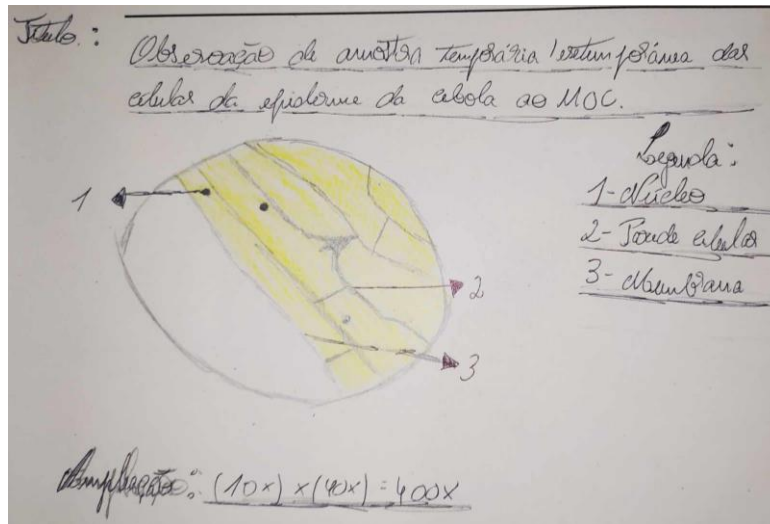 Título:
Observação de amostra temporária/extemporánea das
células da epiderme da cebola ao MOC.
Legenda:
1
1-Núcleo
2- Parede celular
2
3- Membrana
3
Ampliação: (10x) x (40x) = 400x